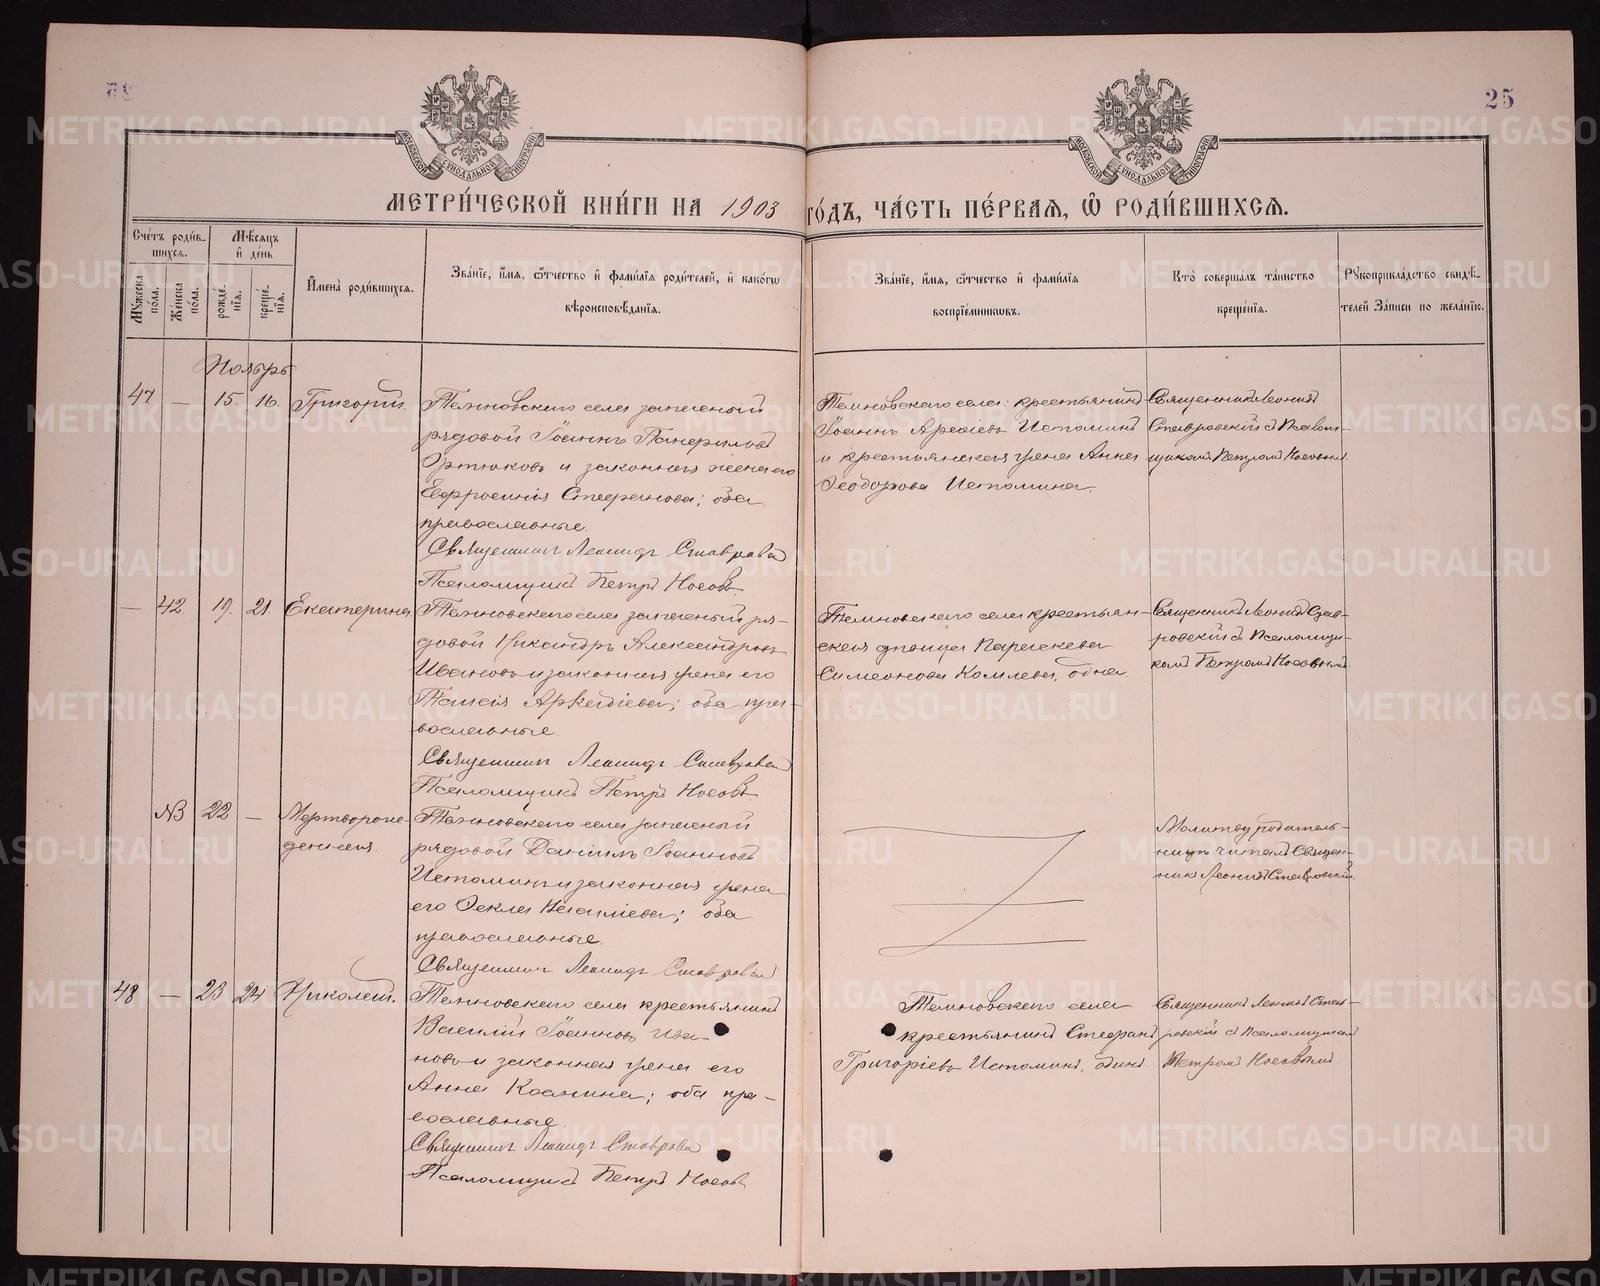 25
МЕТРИ́ЧЕСКОЙ КНИ́ГИ НА 1903 ГО́ДЪ, ЧА́СТЬ ПЕ́РВАЯ, Ѡ РОДИ́ВШИХСЯ.
Сче́тъ роди́в-
шихся.
Мѣ́сяцъ
и де́нь
Му́жеска по́ла.
Же́нска по́ла.
рожде́нія.
креще́нія.
Имена̀ роди́вшихся.
Зва́ніе, и́мя, ѻ́тчество и фами́лія роди́телей, и како́гѡ
вѣроисповѣ́данія.
Зва́ніе, и́мя, ѻ́тчество и фами́лія
воспріе́мникѡвъ.
Кто̀ соверша́лъ та́инство
креще́нія.
Рꙋкоприкла́дство свидѣ́-
телей За́писи по жела́нію.
Ноябрь
47 — 15. 16. Григорій.
Темновскаго села запасный
рядовой Іоаннъ Панфиловъ
Ортюковъ и законная жена его
Евфросинія Стефанова; оба
православные.
Священникъ Леонидъ Ставровскій
Псаломщикъ Петръ Носовъ
Темновскаго села крестьянинъ
Іоаннъ Арсеніевъ Истоминъ
и крестьянская жена Анна
Ѳеодорова Истомина.
Священникъ Леонидъ
Ставровскій съ Псалом-
щикомъ Петромъ Носовымъ
— 42. 19. 21. Екатерина
Темновскаго села запасный ря-
довой Никандръ Александровъ
Ивановъ и законная жена его
Таисія Аркадіева; оба пра-
вославные.
Священникъ Леонидъ Ставровскій
Псаломщикъ Петръ Носовъ
Темновскаго села крестьян-
ская дѣвица Параскева
Симеонова Комлева, одна.
Священникъ Леонидъ Став-
ровскій съ Псаломщи-
комъ Петромъ Носовымъ
№ 22 — Мертворож-
денная.
Темновскаго села запасный
рядовой Даніилъ Іоанновъ
Истоминъ и законная жена
его Ѳекла Василіева; оба
православные.
Священникъ Леонидъ Ставровскій
Молитву родитель-
ницѣ читалъ Священ-
никъ Леонидъ Ставровскій.
48 — 23 24 Николай.
Темновскаго села крестьянинъ
Василій Іоанновъ Ива-
новъ и законная жена его
Анна Космина; оба пра-
вославные
Священникъ Леонидъ Ставровскій
Псаломщикъ Петръ Носовъ
Темновскаго села
крестьянинъ Стефанъ
Григоріевъ Истоминъ, одинъ.
Священникъ Леонидъ Став-
ровскій съ Псаломщикомъ
Петромъ Носовымъ.
METRIKI.GASO-URAL.RU